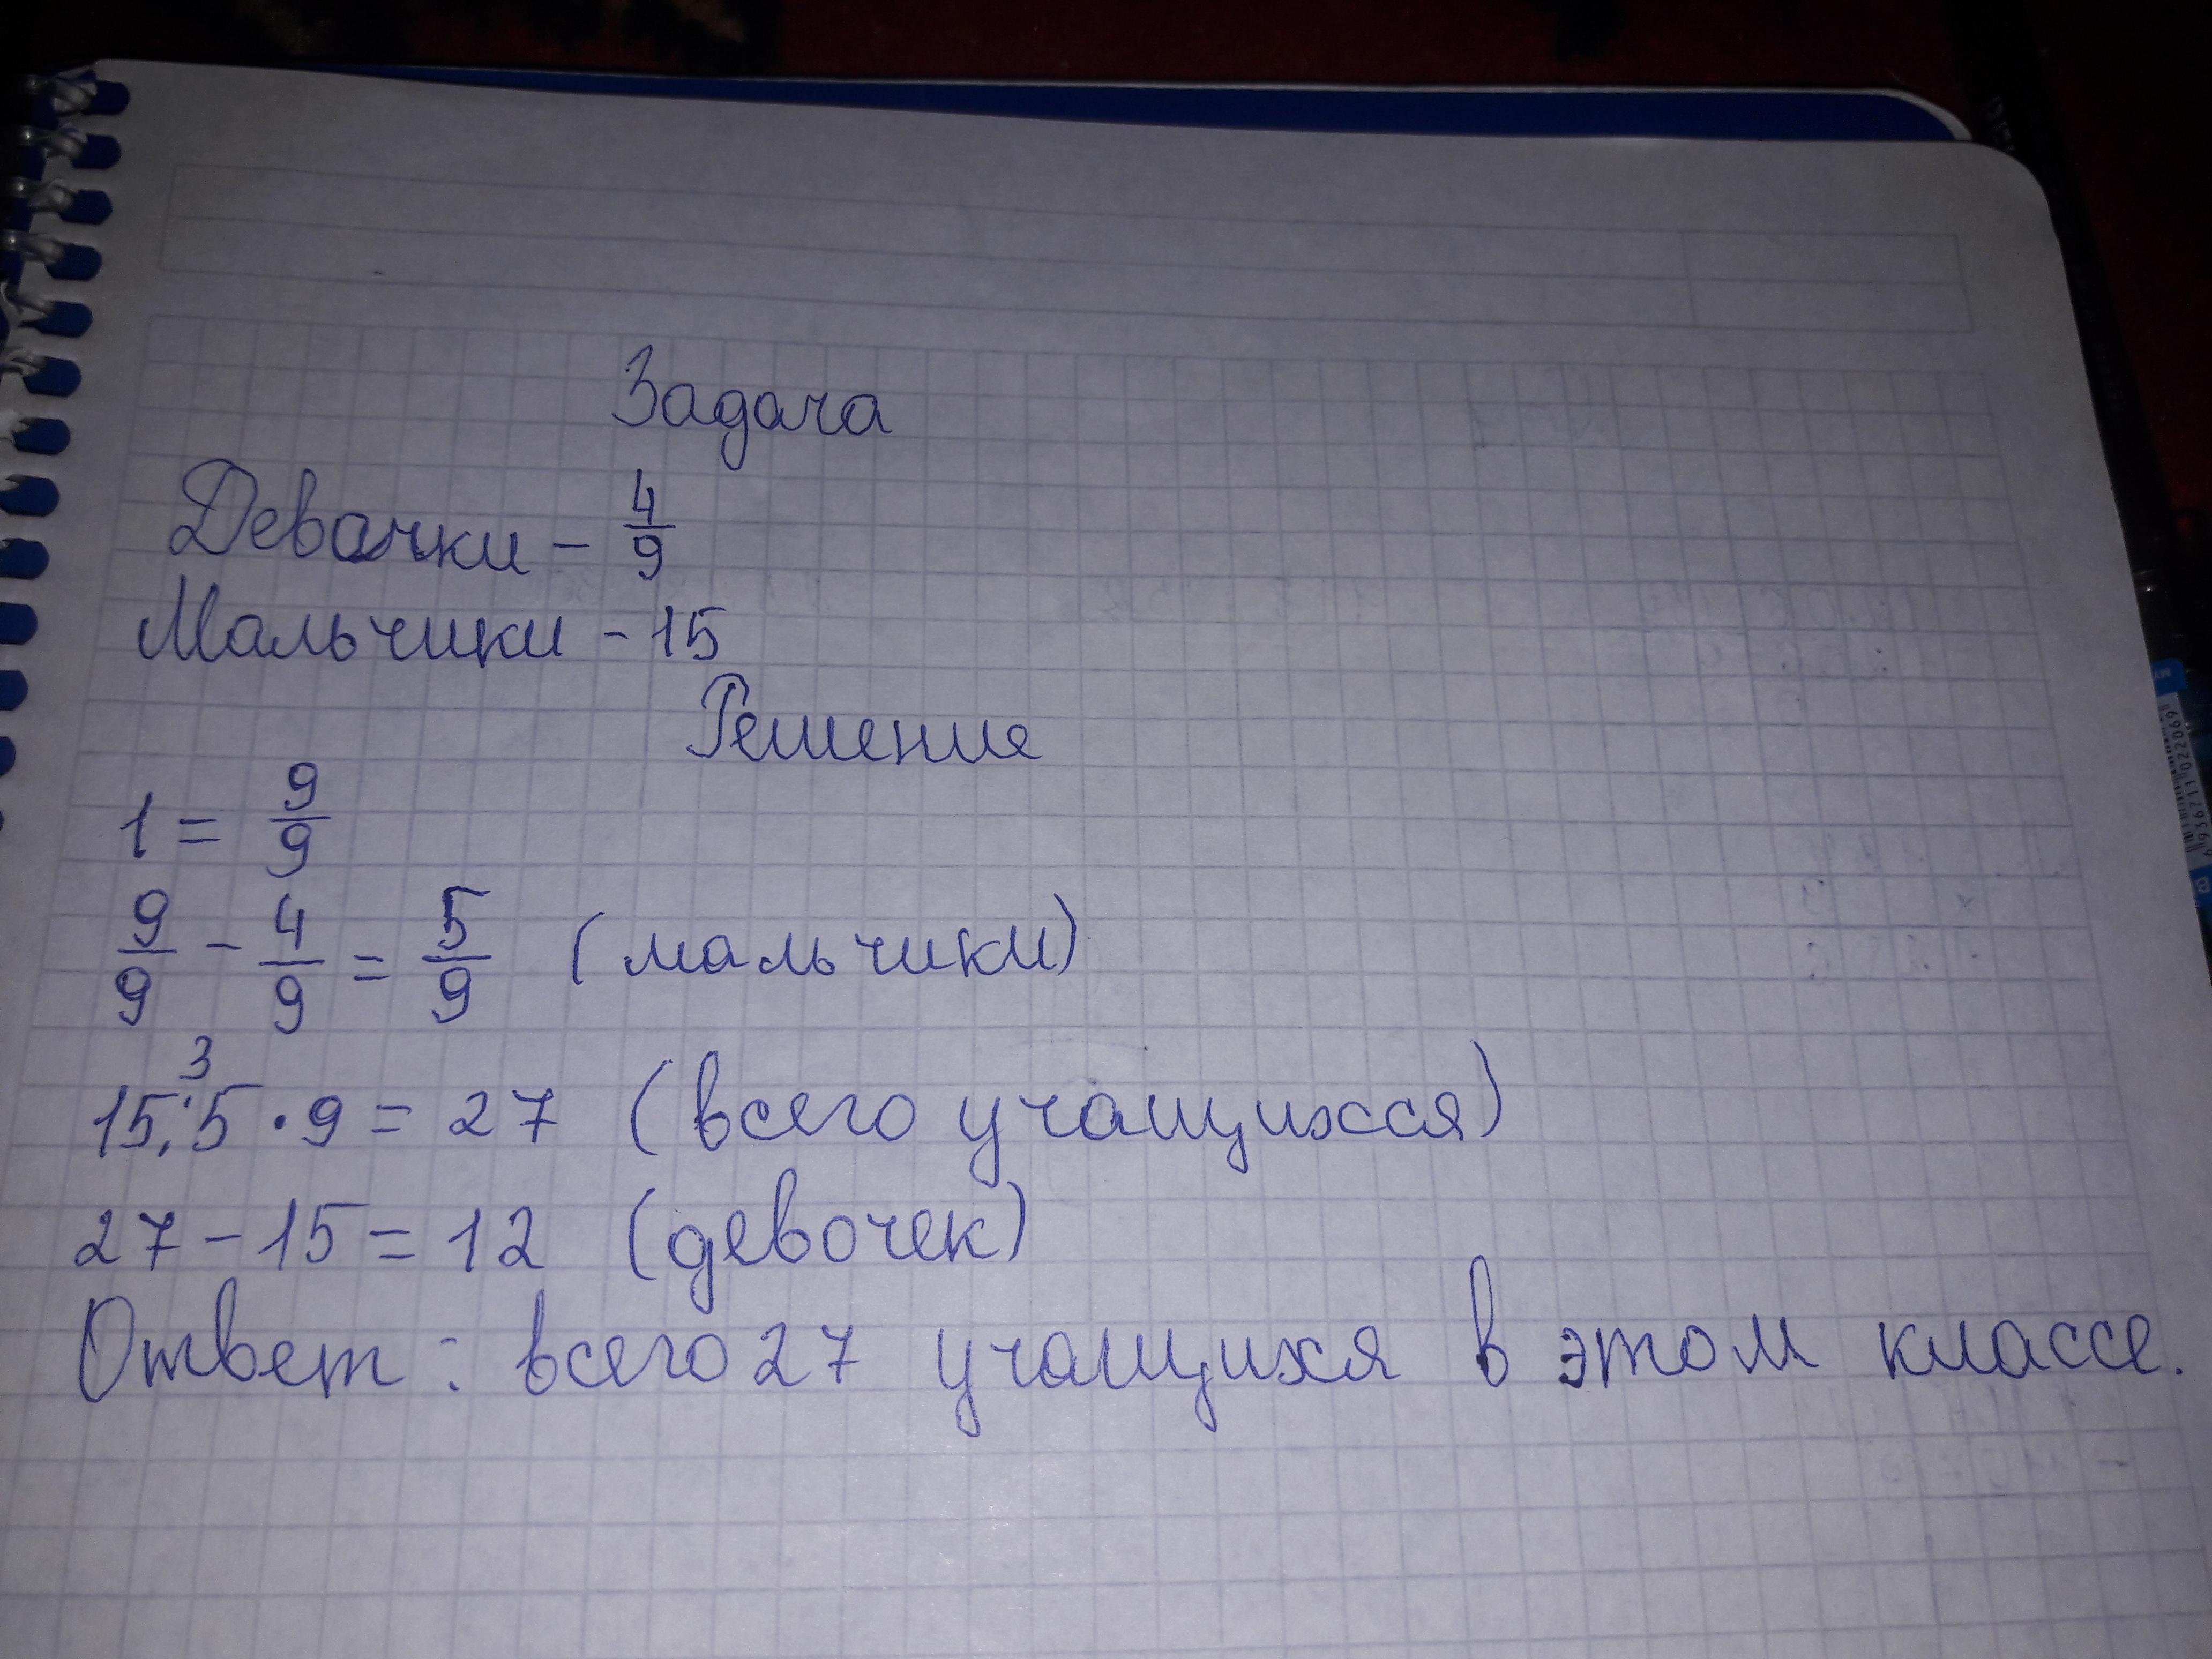 Задача
Девочки - 4/9
Мальчики - 15
Решение
1 = 9/9
9/9 - 4/9 = 5/9 (мальчики)
3
15:5 · 9 = 27 (всего учащихсся)
27 - 15 = 12 (девочек)
Ответ: всего 27 учащихя в этом классе.